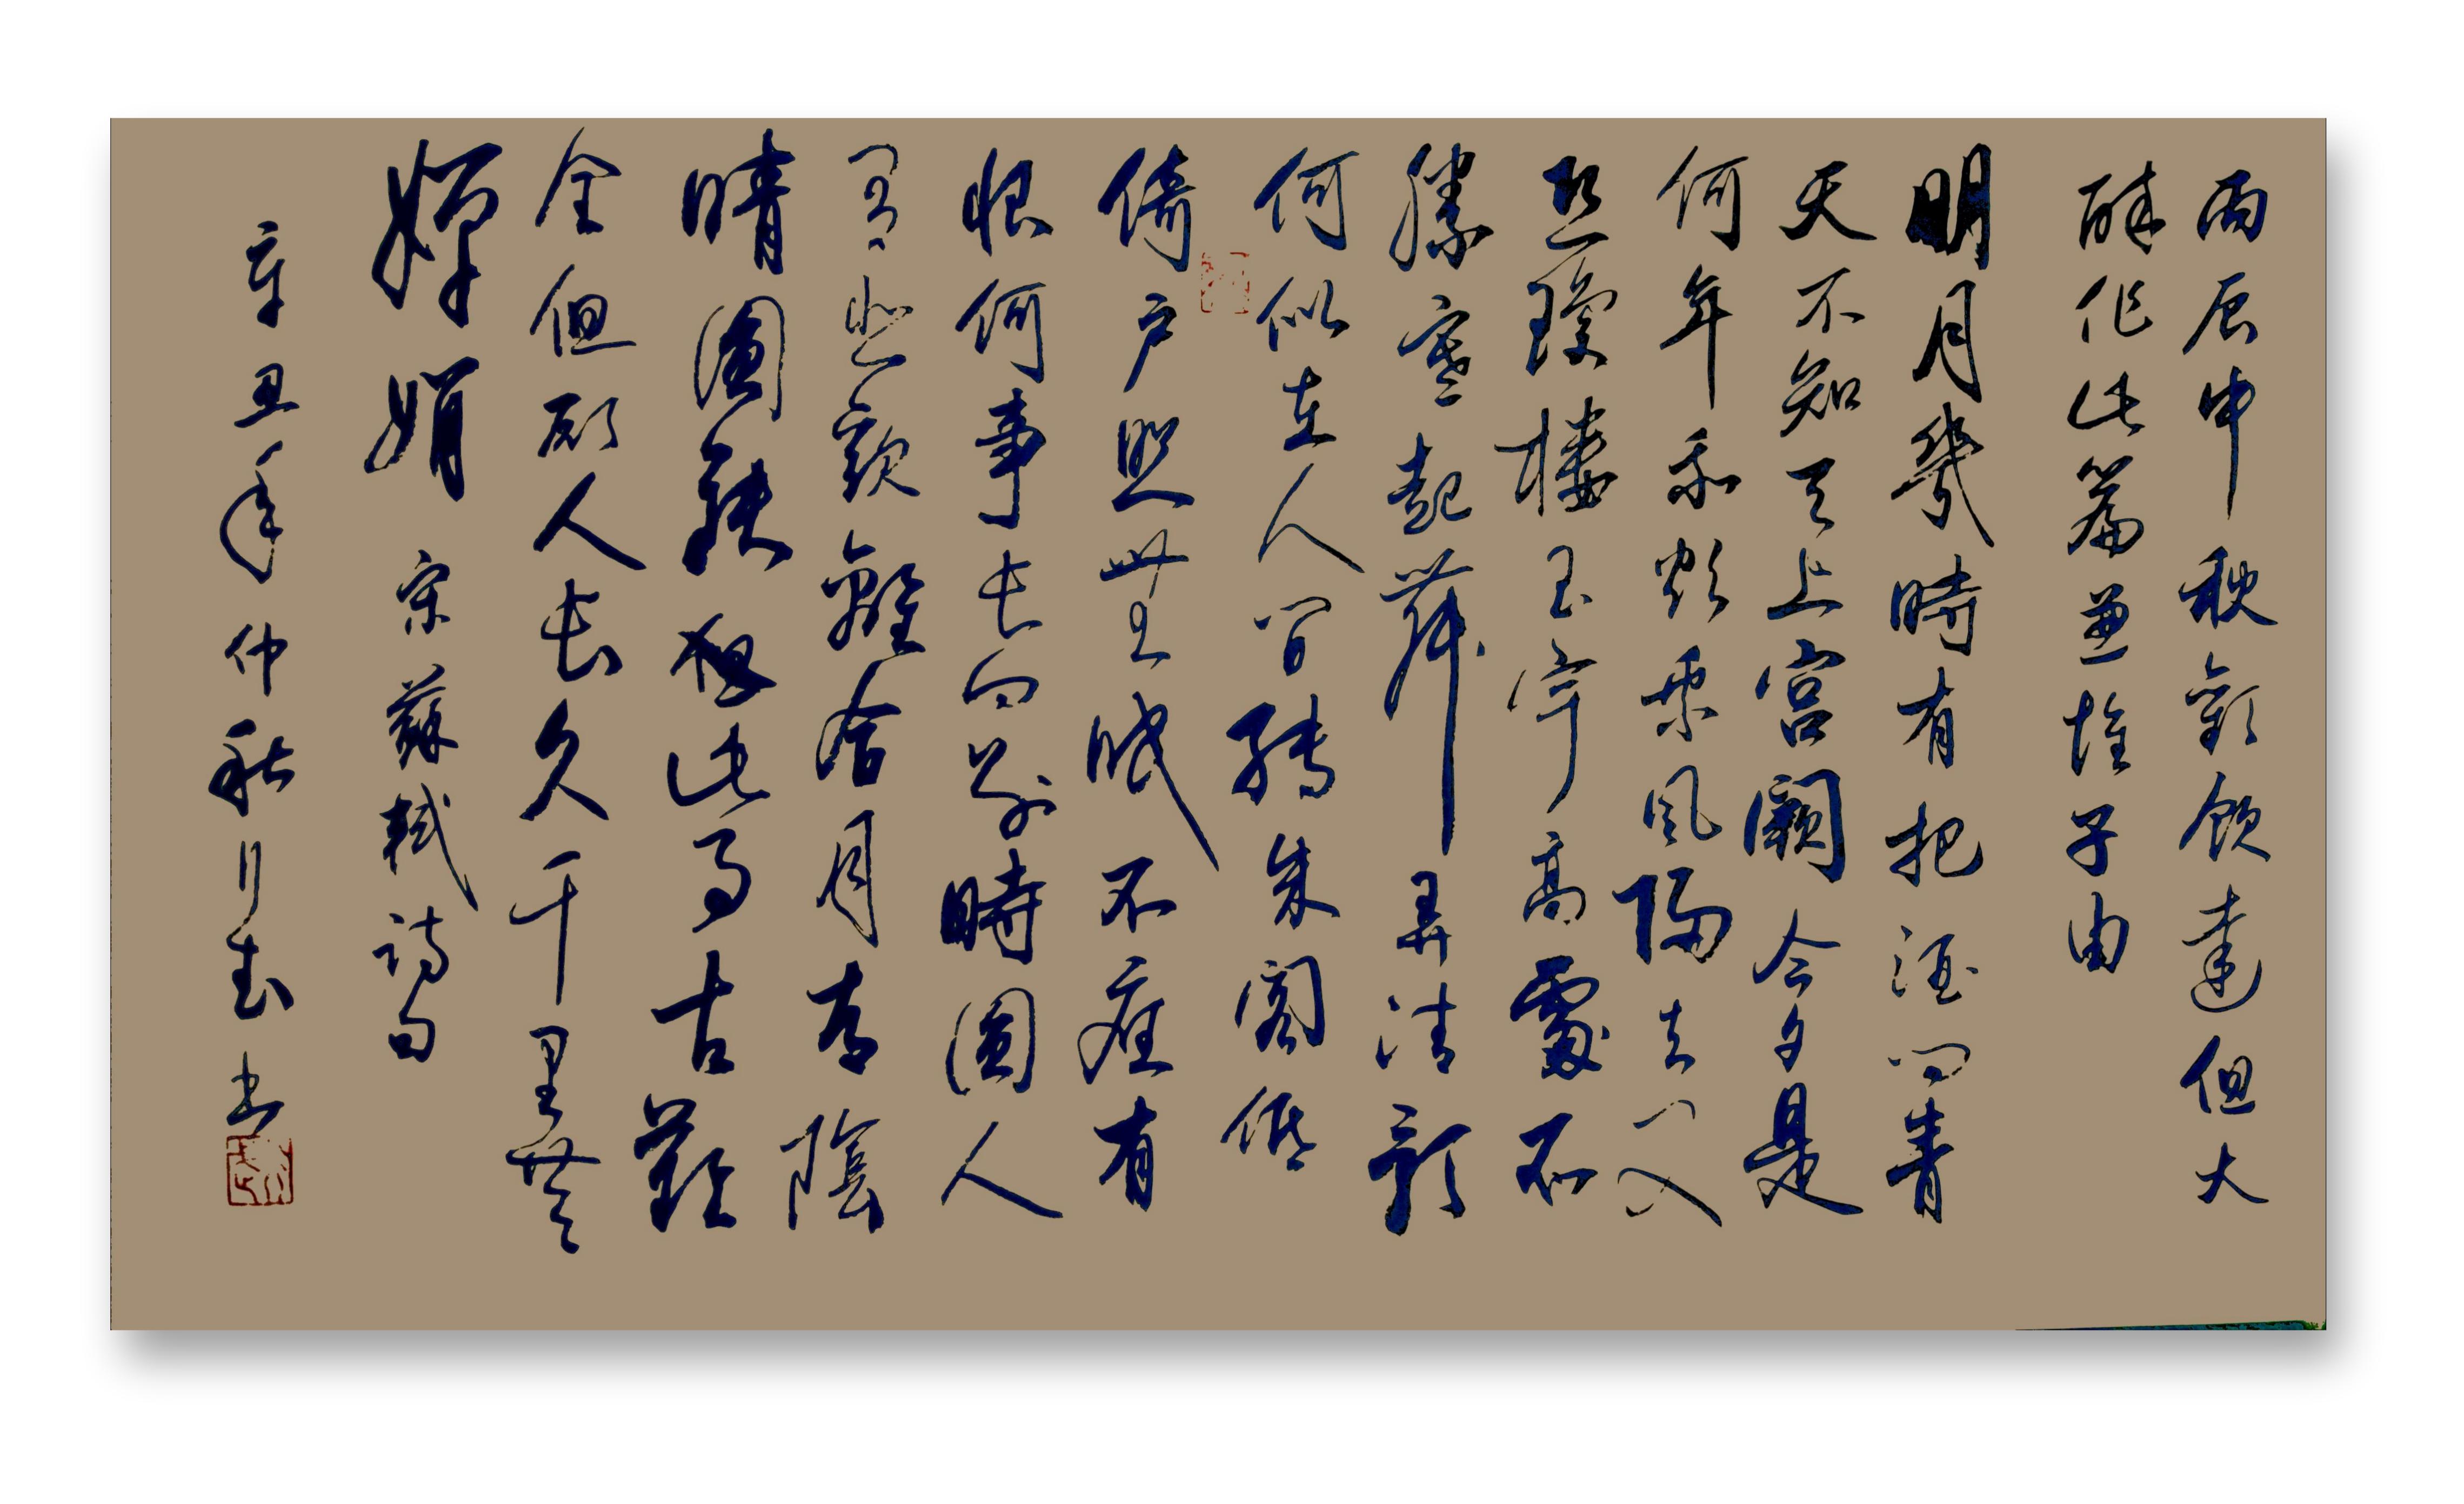 丙辰中秋歡飲達但大
醉作此篇兼懷子由
明月幾時有把酒問青
天不知天上宮闕今夕是
何年我欲乘風歸去又
恐瓊樓玉宇高處不
勝寒起舞弄清影
何似在人間轉朱閣低
綺戶照無眠不應有
恨何事長向別時圓人
有悲歡離合月有陰
晴圓缺此事古難
全但願人長久千里共
嬋娟 宋蘇軾詩句
辛丑年仲秋 书